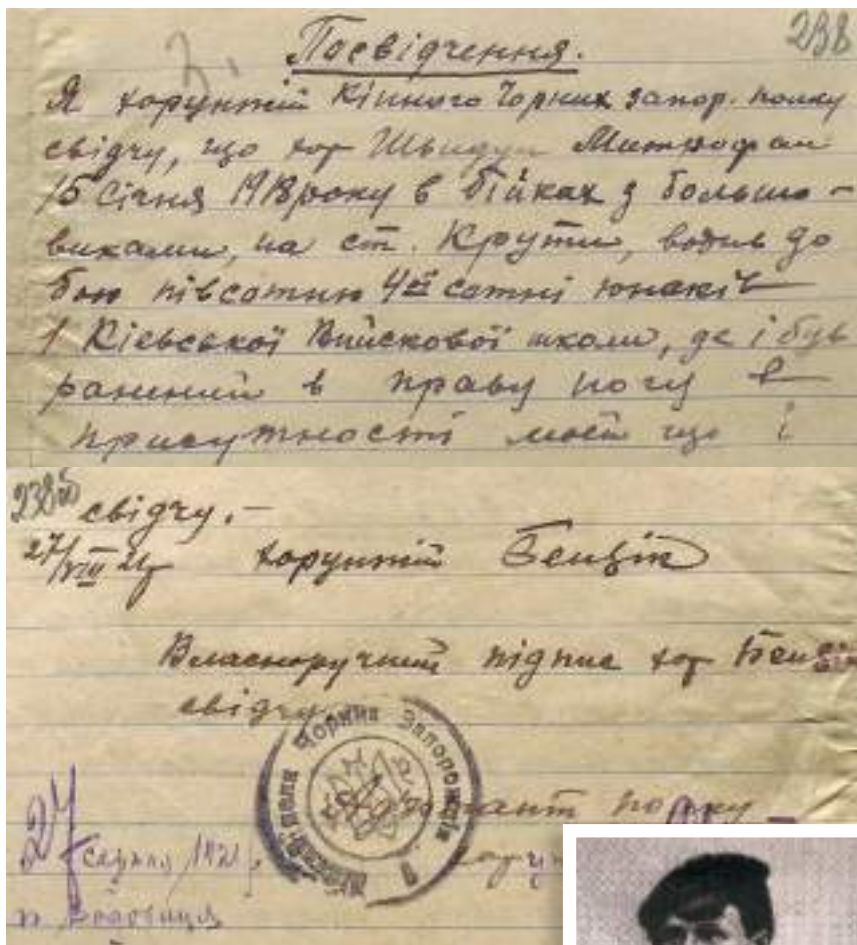 3.
238
Посвідчення.
Я хорунжий Кінного Чорних запор. полку
свідчу, що хор Швидун Митрофан
15 Січня 1918 року в бійках з больше-
виками, на ст. Крути, водив до
бою півсотню 4ої сотні юнаків
1 Кієвської Військової школи, де і був
ранений в праву ногу в
присутности моєй що і
238об
свідчу.-
27/VIII 21р хорунжий Бенцін
Власноручний підпис хор Бенцін
свідчу
Чорних Запорожців
Адютант полку
27
серпня 1921 р.